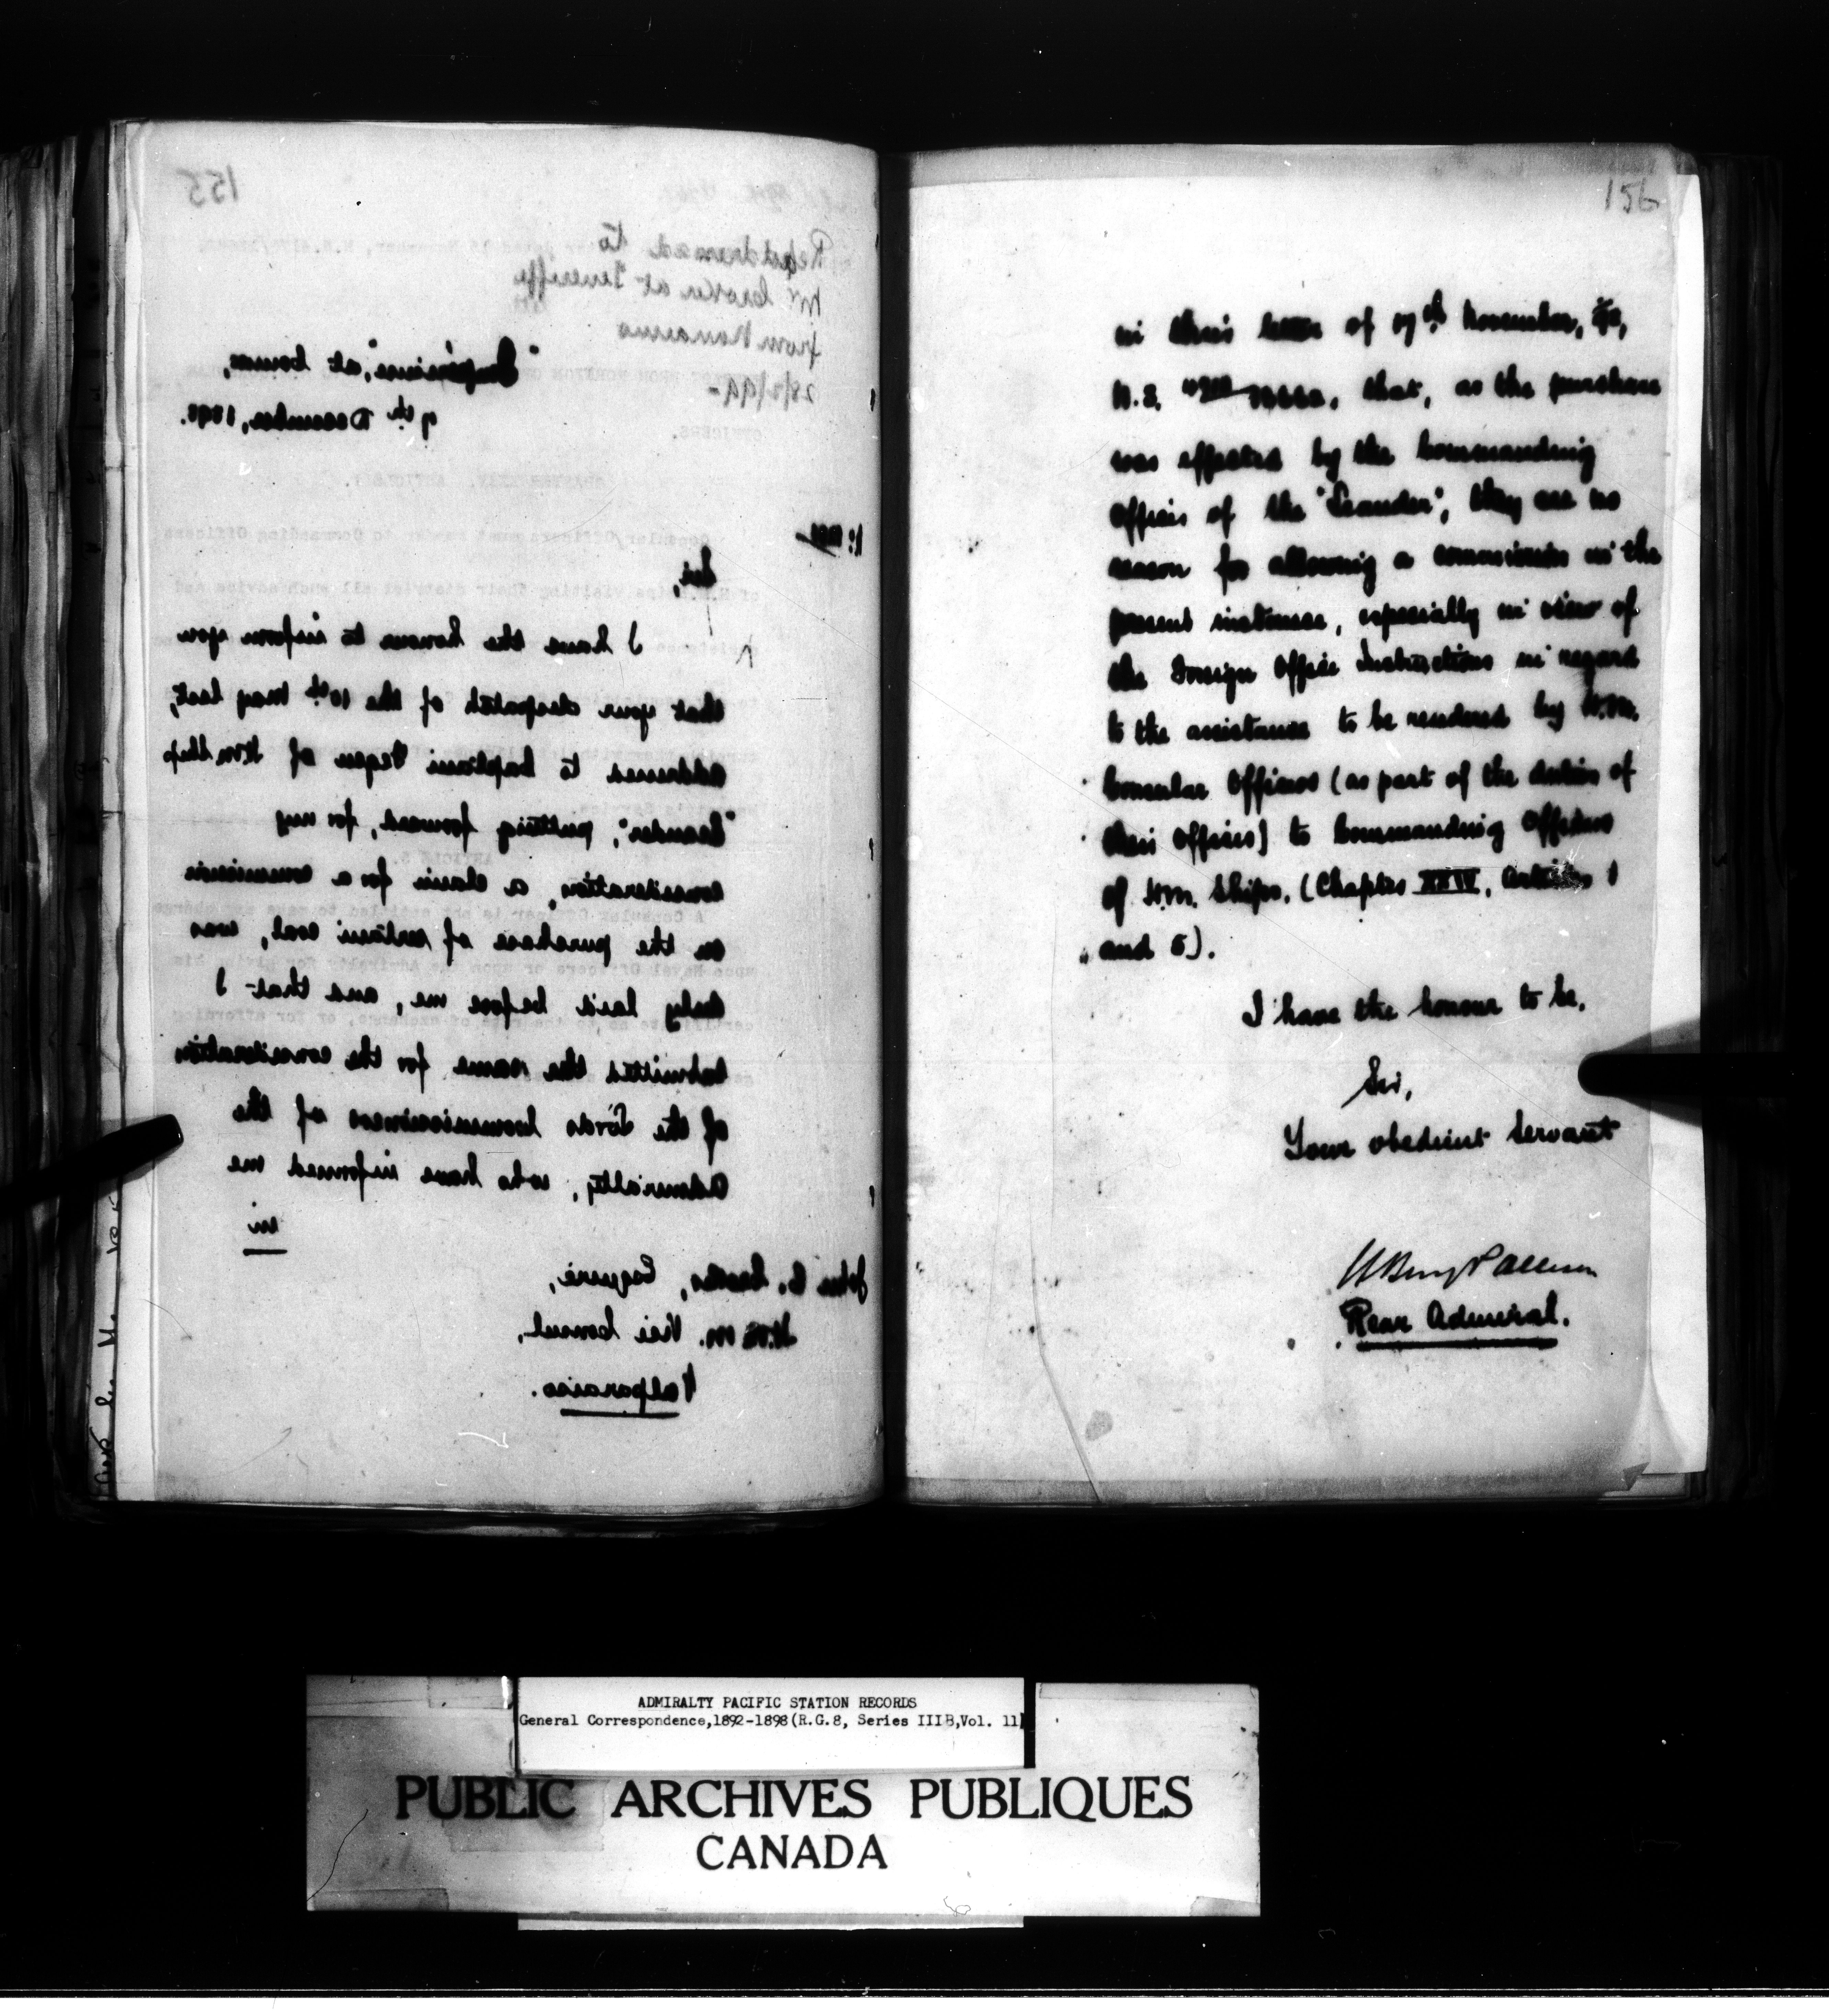 155
Readdressed to
Mr Croker at Teneriffe
from Nanaimo
28/2/99-
"Impérieuse", at Comox,
9th December, 1898.
Sir,
I have the honour to inform you
that your despatch of the 10th May last,
addressed to Captain Fegen of H.M. Ship
"Leander", putting forward, for my
consideration, a claim for a commission
on the purchase of certain coal, was
duly laid before me, and that I
submitted the same for the consideration
of the Lords Commissioners of the
Admiralty, who have informed me
in
John C. Esquire,
H.B.M. Vice Consul,
Valparaiso.
156
in their letter of November,
N.S. that, as the purchase
was effected by the Commanding
Officer of the "Leander", they see no
reason for allowing a commission in the
present instance, especially in view of
the Foreign Office Instructions in regard
to the assistance to be rendered by H.M.
Consular Officers (as part of the duties of
their Offices) to Commanding Officers
of H.M. Ships. (Chapter XXIV, Articles 1
and 5).
I have the honour to be,
Sir,
Your obedient Servant
Rear Admiral.
ADMIRALTY PACIFIC STATION RECORDS
General Correspondence,1892-1898(R.G.8, Series IIIB,Vol. 11)
PUBLIC ARCHIVES PUBLIQUES
CANADA